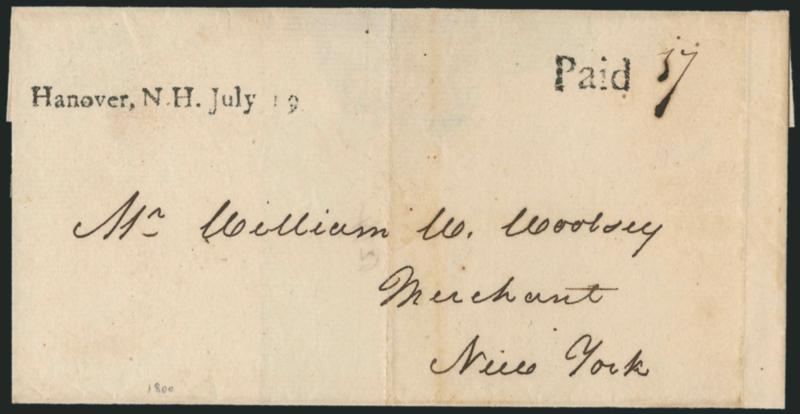 Paid 17
Hanover, N.H. July 19
Mr. William W. Woolsey
Merchant
New York
1800